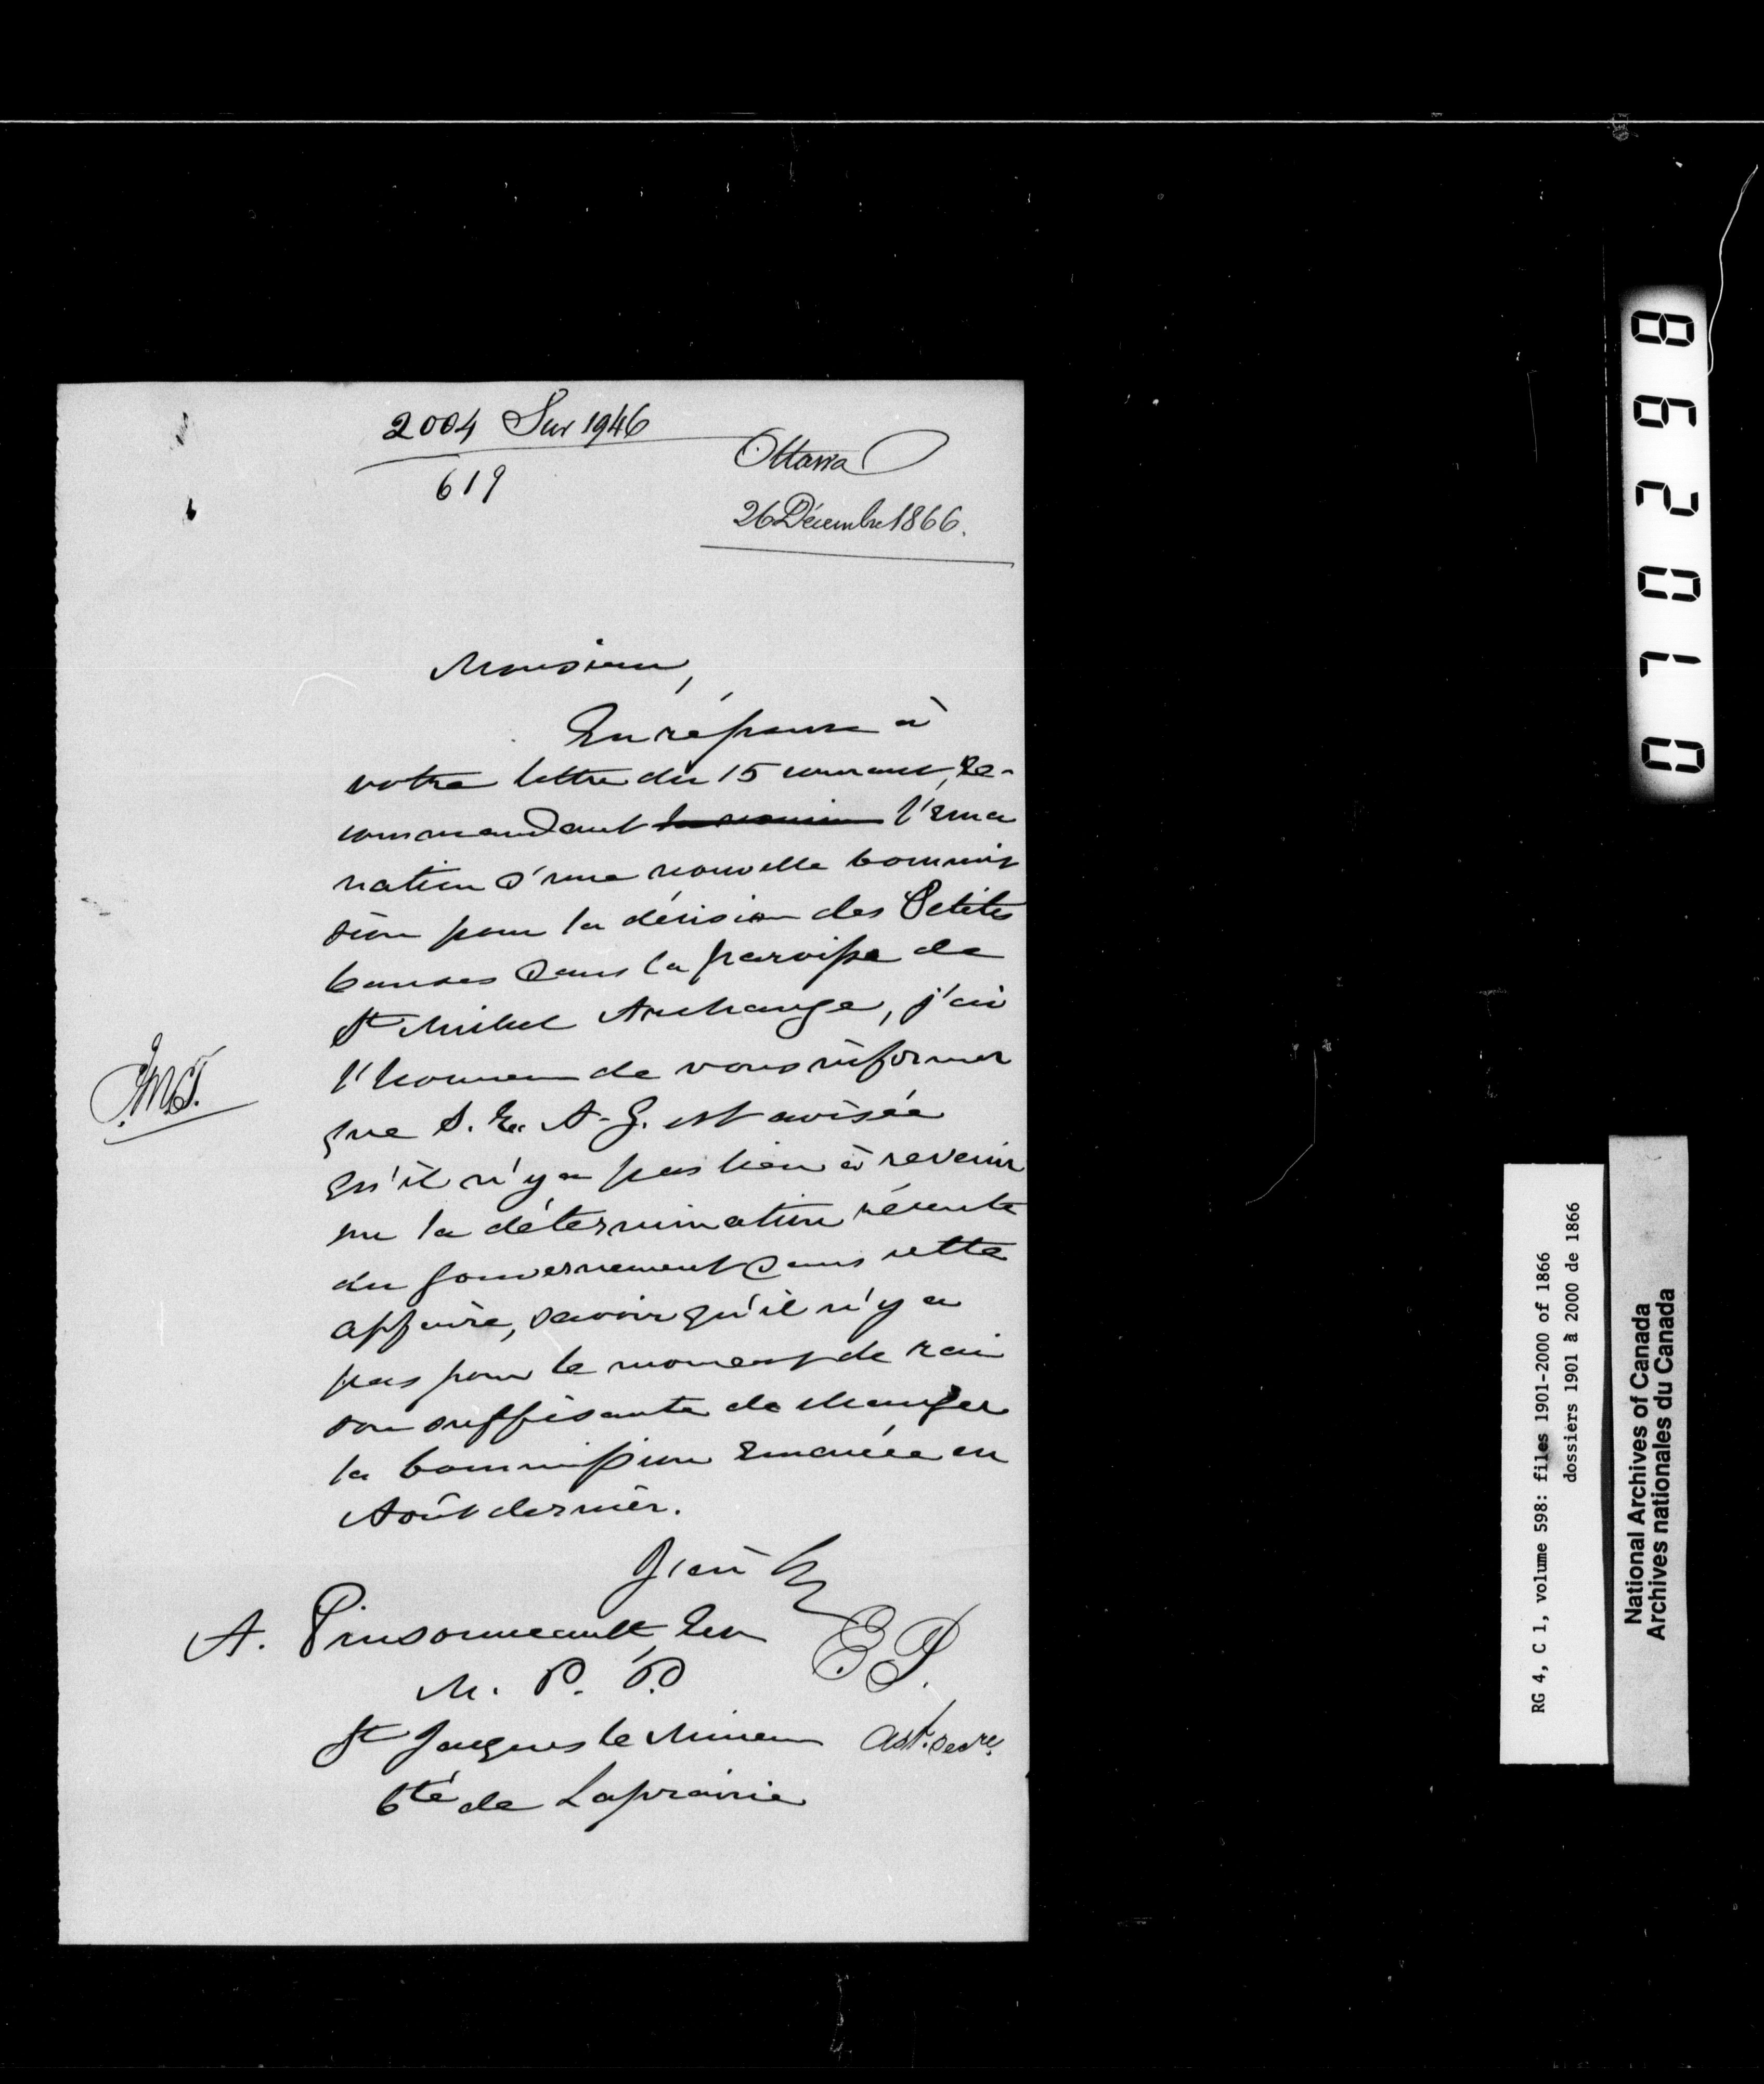 2004 Sur 1946
619
Ottawa
26 Décembre 1866.
Monsieur,
En réponse à
votre lettre du 15 courant, re-
commandant l'éma
nation d'une nouvelle Commis
sion pour la décision des Petites
Causes dans la paroisse de
St Michel Archange, j'ai
l'honneur de vous informer
que S. E. A. G. est avisée
qu'il n'y a pas lieu à revenir
sur la détermination récente
du gouvernement dans cette
affaire, savoir qu'il n'y a
pas pour le moment de rai
son suffisante de changer
la Commission émanée en
Août dernier.
J'ai
A. Pinsonneault, Ecr
M. P. P.
St Jacques le Mineur
Cté de Laprairie
E P.
Asst. Secre.
National Archives of Canada
Archives nationales du Canada
RG 4, C 1, volume 598: files 1901-2000 of 1866
dossiers 1901 à 2000 de 1866
010298